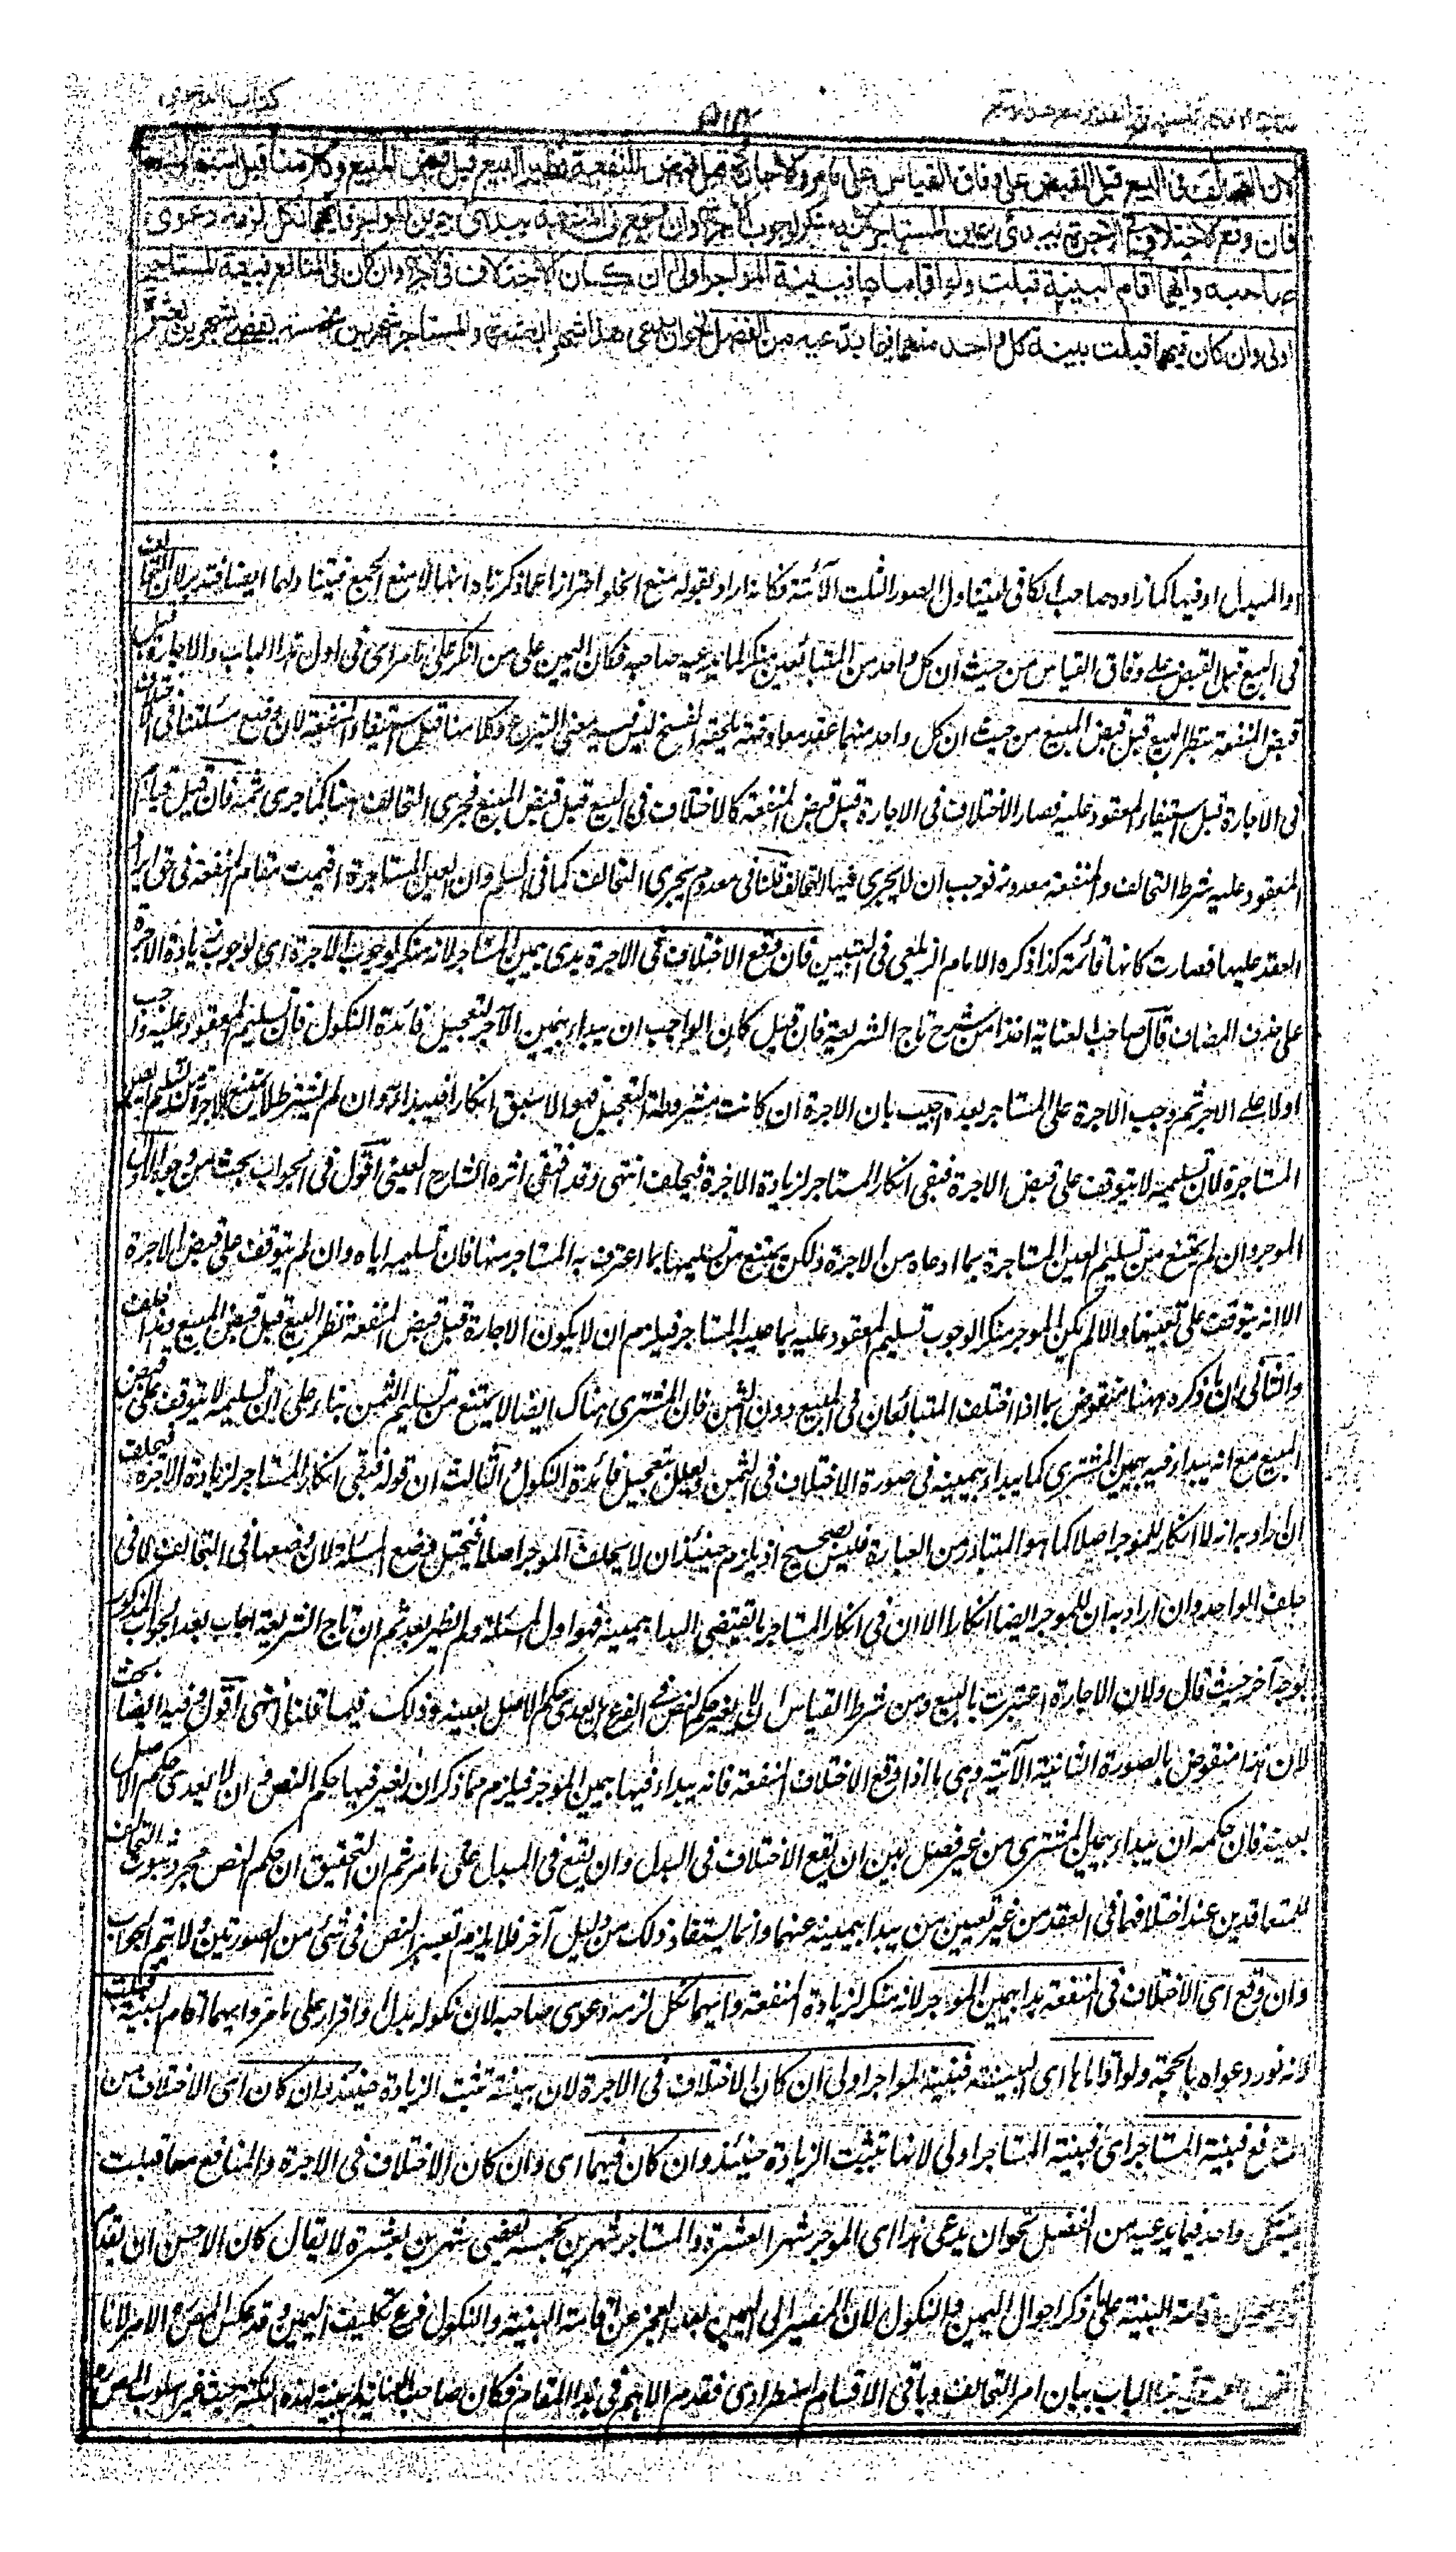 كتاب الدعوى
لان التحالف فى البيع قبل القبض على وفاق القياس على ما مر والاجارة قبل قبض المنفعة نظير البيع قبل قبض المبيع وكلامنا قبل استيفاء المنفعة
فان وقع الاختلاف فى الاجرة يبدئ بيمين المستاجر لانه منكر لوجوب الاجرة وان وقع فى المنفعة يبدئ بيمين المواجر فايهما نكل لزمه دعوى
صاحبه وايهما اقام البينة قبلت ولو اقاماها فبينة المواجر اولى ان كان الاختلاف فى الاجرة وان كان فى المنافع فبينة المستاجر
اولى وان كان فيهما قبلت بينة كل واحد منهما فيما يدعيه من الفضل نحو ان يدعى هذا شهرا بعشرة والمستاجر شهرين بخمسة يقضى بشهرين بعشرة
او المبدل او فيهما كما زاده صاحب الكافى ليتناول الصور الثلث الآتية فكانه اراد بقوله منع الخلو احترازا عما ذكرناه انهما لا منع الجمع فيتناولهما ايضا فتدبر لان التحالف
فى البيع قبل القبض على وفاق القياس من حيث ان كل واحد من المتبائعين منكر لما يدعيه صاحبه فكان اليمين على من انكر على ما مر اى فى اول هذا الباب والاجارة قبل
قبض المنفعة نظير البيع قبل قبض المبيع من حيث ان كل واحد منهما عقد معاوضة يلحقه الفسخ ليس فيه معنى التبرع وكلامنا قبل استيفاء المنفعة لان وضع مسئلتنا فى الاختلاف
فى الاجارة قبل استيفاء المعقود عليه فصار الاختلاف فى الاجارة قبل قبض المنفعة كالاختلاف فى البيع قبل قبض المبيع فجرى التحالف هنا كما جرى ثمة فان قيل قيام
المعقود عليه شرط التحالف والمنفعة معدومة فوجب ان لا يجرى فيها التحالف قلنا فى معدوم يجرى التحالف كما فى السلم وان العين المستاجرة اقيمت مقام المنفعة فى حق ايراد
العقد عليها فصارت كانها قائمة كذا ذكره الامام الزيلعى فى التبيين فان وقع الاختلاف فى الاجرة يبدئ بيمين المستاجر لانه منكر لوجوب الاجرة اى لوجوب زيادة الاجرة
على حذف المضاف قال صاحب العناية اخذا من شرح تاج الشريعة فان قيل كان الواجب ان يبداء بيمين الآجر لتعجيل فائدة النكول فان تسليم المعقود عليه واجب
اولا على الآجر ثم وجب الاجرة على المستاجر بعده اجيب بان الاجرة ان كانت مشروطة التعجيل فهو الاسبق انكارا فيبداء به وان لم يشترط لا يمتنع الآجر من تسليم العين
المستاجرة لان تسليمه لا يتوقف على قبض الاجرة فبقى انكار المستاجر لزيادة الاجرة فيحلف انتهى وقد اقتفى اثره الشارح العينى اقول فى الجواب بحث من وجوه الاول ان
الموجر وان لم يمتنع من تسليم العين المستاجرة بما ادعاه من الاجرة ولكن يمتنع من تسليمها بما اعترف به المستاجر منها فان تسليمه اياه وان لم يتوقف على قبض الاجرة
الا انه يتوقف على تعيينها والا لم يكن الموجر منكرا لوجوب تسليم المعقود عليه بما عينه المستاجر فيلزم ان لا يكون الاجارة قبل قبض المنفعة نظير البيع قبل قبض المبيع وهذا خلف
والثانى ان ما ذكره ههنا منقوض بما اذا اختلف المتبائعان فى المبيع دون الثمن فان المشترى هناك ايضا لا يمتنع من تسليم الثمن بناء على ان تسليمه لا يتوقف على قبض
المبيع مع انه يبداء فيه بيمين المشترى كما يبداء بيمينه فى صورة الاختلاف فى الثمن ويعلل بتعجيل فائدة النكول والثالث ان قوله فبقى انكار المستاجر لزيادة الاجرة فيحلف
ان اراد به انه لا انكار للموجر اصلا كما هو المتبادر من العبارة فليس بصحيح اذ يلزم حينئذ ان لا يحلف الموجر اصلا فيختل وضع المسئلة لان وضعها فى التحالف لا فى
حلف الواحد وان اراد به ان للموجر ايضا انكارا الا ان فى انكار المستاجر ما يقتضى البداء بيمينه فهو اول المسئلة ولم يظهر بعد ثم ان تاج الشريعة اجاب بعد الجواب المذكور
بوجه آخر حيث قال ولان الاجارة اعتبرت بالبيع ومن شرط القياس ان لا يغير حكم النص فى الفرع بل يعدى حكم الاصل بعينه وذلك فيما قلنا انتهى اقول وفيه ايضا بحث
لان هذا منقوض بالصورة الثانية الآتية وهى ما اذا وقع الاختلاف فى المنفعة فانه يبداء فيها بيمين الموجر فيلزم مما ذكر ان يغير فيها حكم النص وان لا يعدى حكم الاصل
بعينه فان حكمه ان يبداء بيمين المشترى من غير فصل بين ان يقع الاختلاف فى البدل وان يقع فى المبدل على ما مر ثم ان التحقيق ان حكم النص مجرد ثبوت التحالف
للمتعاقدين عند اختلافهما فى العقد من غير تعيين من يبدا بيمينه منهما وانما يستفاد ذلك من دليل آخر فلا يلزم تغيير النص فى شئ من الصورتين ولا يتم الجواب
وان وقع اى الاختلاف فى المنفعة يبدا بيمين الموجر لانه منكر لزيادة المنفعة وايهما نكل لزمه دعوى صاحبه لان نكوله بدل او اقرار على ما مر وايهما اقام البينة قبلت
لانه نور دعواه بالحجة ولو اقاماها اى البينة فبينة المواجر اولى ان كان الاختلاف فى الاجرة لان بينته تثبت الزيادة حينئذ وان كان اى الاختلاف من
المنافع فبينة المستاجر اى فبينة المستاجر اولى لانها تثبت الزيادة حينئذ وان كان فيهما اى وان كان الاختلاف فى الاجرة والمنافع معا قبلت
بينة كل واحد فيما يدعيه من الفضل نحو ان يدعى هذا اى الموجر شهرا بعشرة والمستاجر شهرين بخمسة يقضى بشهرين بعشرة لا يقال كان الاحسن ان يقدم
اقامة البينة على ما ذكر احوال اليمين والنكول لان المصير الى اليمين بعد العجز عن اقامة البينة والنكول فرع تكليف اليمين وقد عكس المصنف الامر لانا
الباب بيان امر التحالف وباقى الاقسام استطرادى فقدم الاهم فى هذا المقام فكان صاحب العناية لم يتنبه لهذه النكتة حيث غير اسلوب المصنف